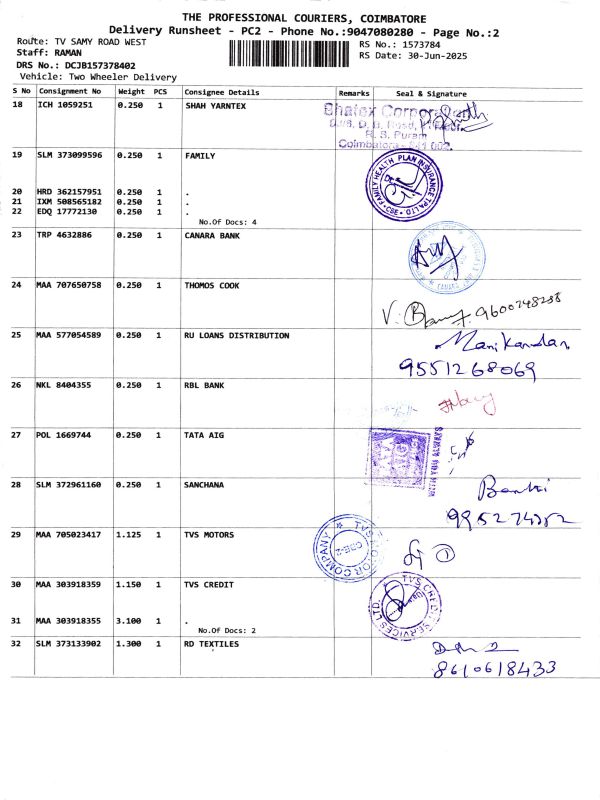 THE PROFESSIONAL COURIERS, COIMBATORE
Delivery Runsheet - PC2 - Phone No.:9047080280 - Page No.:2
Route: TV SAMY ROAD WEST
RS No.: 1573784
Staff: RAMAN
RS Date: 30-Jun-2025
DRS No.: DCJB157378402
Vehicle: Two Wheeler Delivery
S No Consignment No Weight PCS Consignee Details Remarks Seal & Signature
18 ICH 1059251 0.250 1 SHAH YARNTEX
R. S. Puram
19 SLM 373099596 0.250 1 FAMILY
FAMILY HEALTH PLAN INSURANCE TPA LTD CBE
20 HRD 362157951 0.250 1 .
21 IXM 508565182 0.250 1 .
22 EDQ 17772130 0.250 1 .
No.Of Docs: 4
23 TRP 4632886 0.250 1 CANARA BANK
24 MAA 707650758 0.250 1 THOMOS COOK
25 MAA 577054589 0.250 1 RU LOANS DISTRIBUTION
Manikandan
9551268069
26 NKL 8404355 0.250 1 RBL BANK
27 POL 1669744 0.250 1 TATA AIG
WITH YOU ALWAYS
28 SLM 372961160 0.250 1 SANCHANA
29 MAA 705023417 1.125 1 TVS MOTORS
TVS MOTOR COMPANY CBE-2
30 MAA 303918359 1.150 1 TVS CREDIT
TVS CREDIT SERVICES LTD.
31 MAA 303918355 3.100 1 .
No.Of Docs: 2
32 SLM 373133902 1.300 1 RD TEXTILES
8610618433